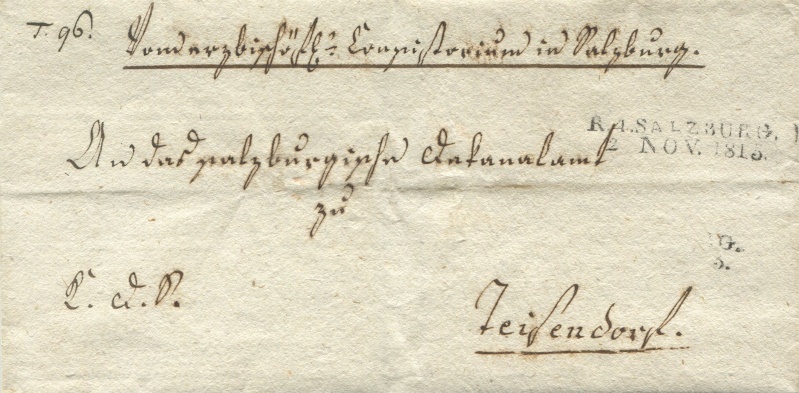 T. 96.
Von der erzbischöfl. Consistorium in Salzburg.
An das salzburgische Dekanalamt
R.4.SALZBURG.
2 NOV. 1815.
zu
G.
5.
R. d. S.
Teisendorf.